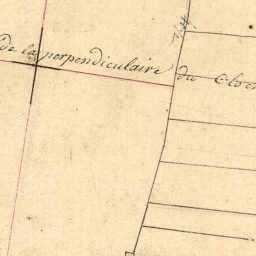 de la perpendiculaire du Cloch